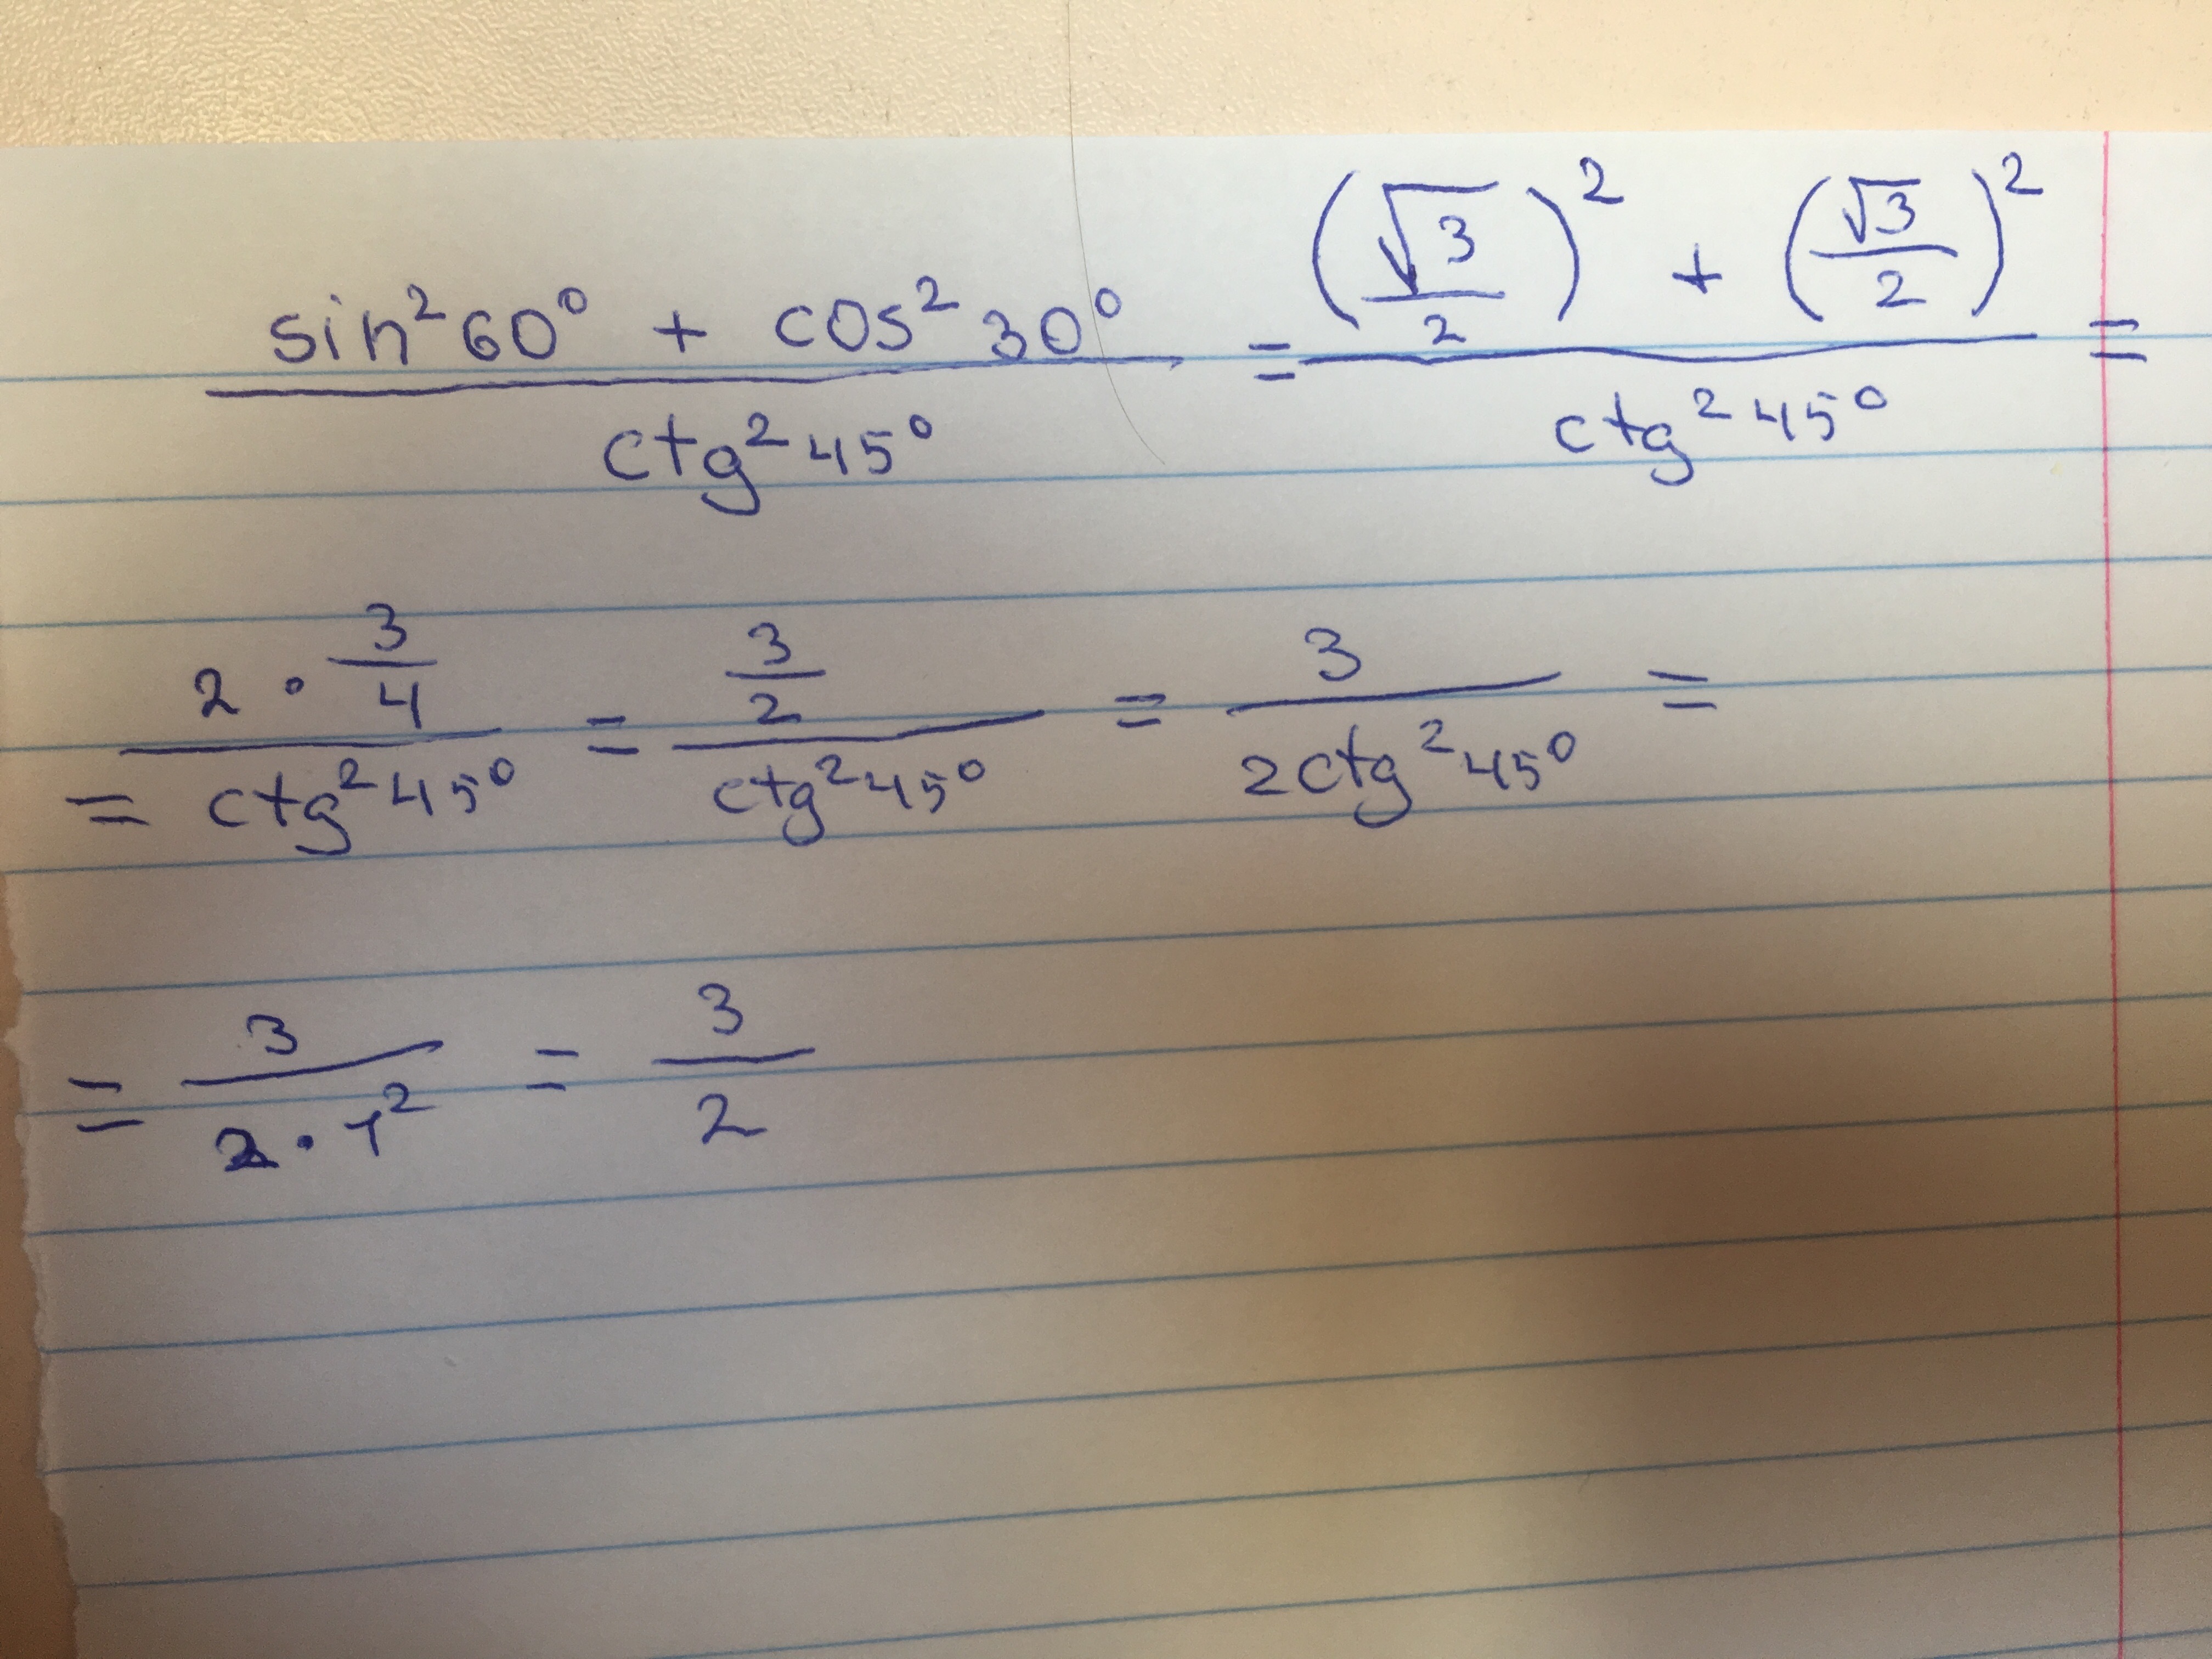 (sin²60° + cos²30°)/(ctg²45°) = ((√3/2)² + (√3/2)²)/(ctg²45°) =
= (2 · 3/4)/(ctg²45°) = (3/2)/(ctg²45°) = 3/(2ctg²45°) =
= 3/(2 · 1²) = 3/2